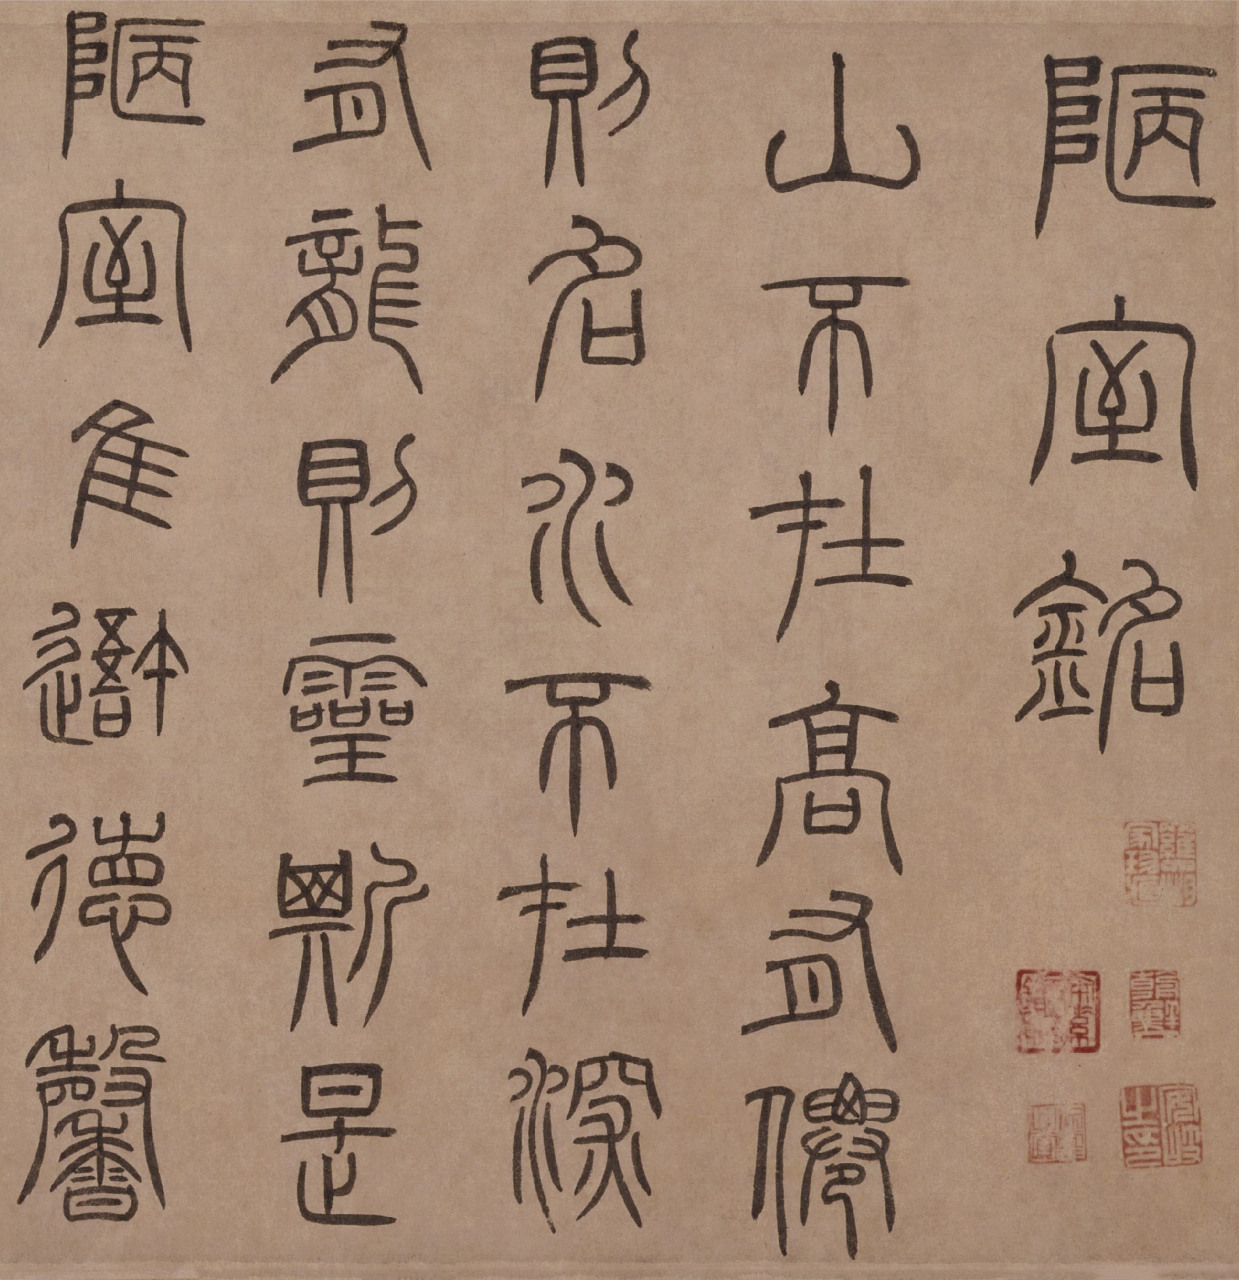 陋室銘
山不在高有僊
則名水不在深
有龍則靈斯是
陋室隹吾德馨
安岐之印